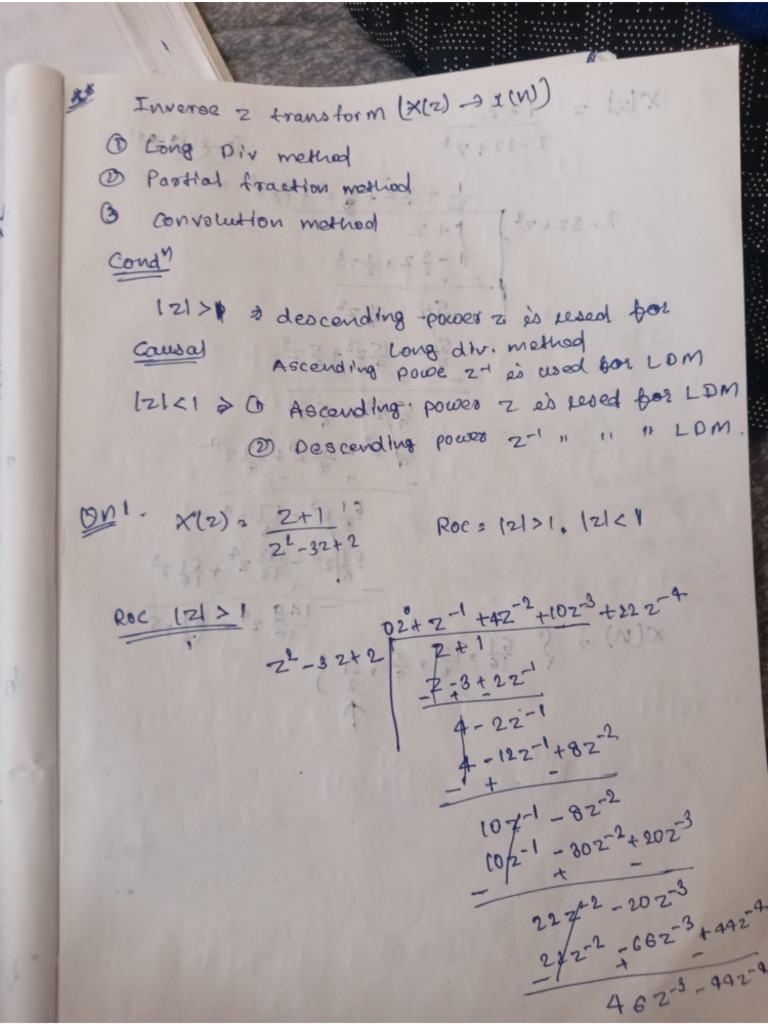 Inverse z transform (X(z) → x(n))
① Long Div method
② Partial fraction method
③ Convolution method
Condⁿ
|z|>1 ⇒ descending power z is used for
Causal Long div. method
Ascending powe z⁻¹ is used for LDM
|z|<1 ⇒ ① Ascending power z is used for LDM
② Descending power z⁻¹ " " " LDM.
Qn1. X(z) = (z+1)/(z²-3z+2) Roc = |z|>1, |z|<1
Roc |z|>1
0z⁰ + z⁻¹ + 4z⁻² + 10z⁻³ + 22z⁻⁴
z² - 3z + 2 z + 1
z - 3 + 2z⁻¹
- + -
4 - 2z⁻¹
4 - 12z⁻¹ + 8z⁻²
- + -
10z⁻¹ - 8z⁻²
10z⁻¹ - 30z⁻² + 20z⁻³
- + -
22z⁻² - 20z⁻³
22z⁻² - 66z⁻³ + 44z⁻⁴
- + -
46z⁻³ - 44z⁻⁴